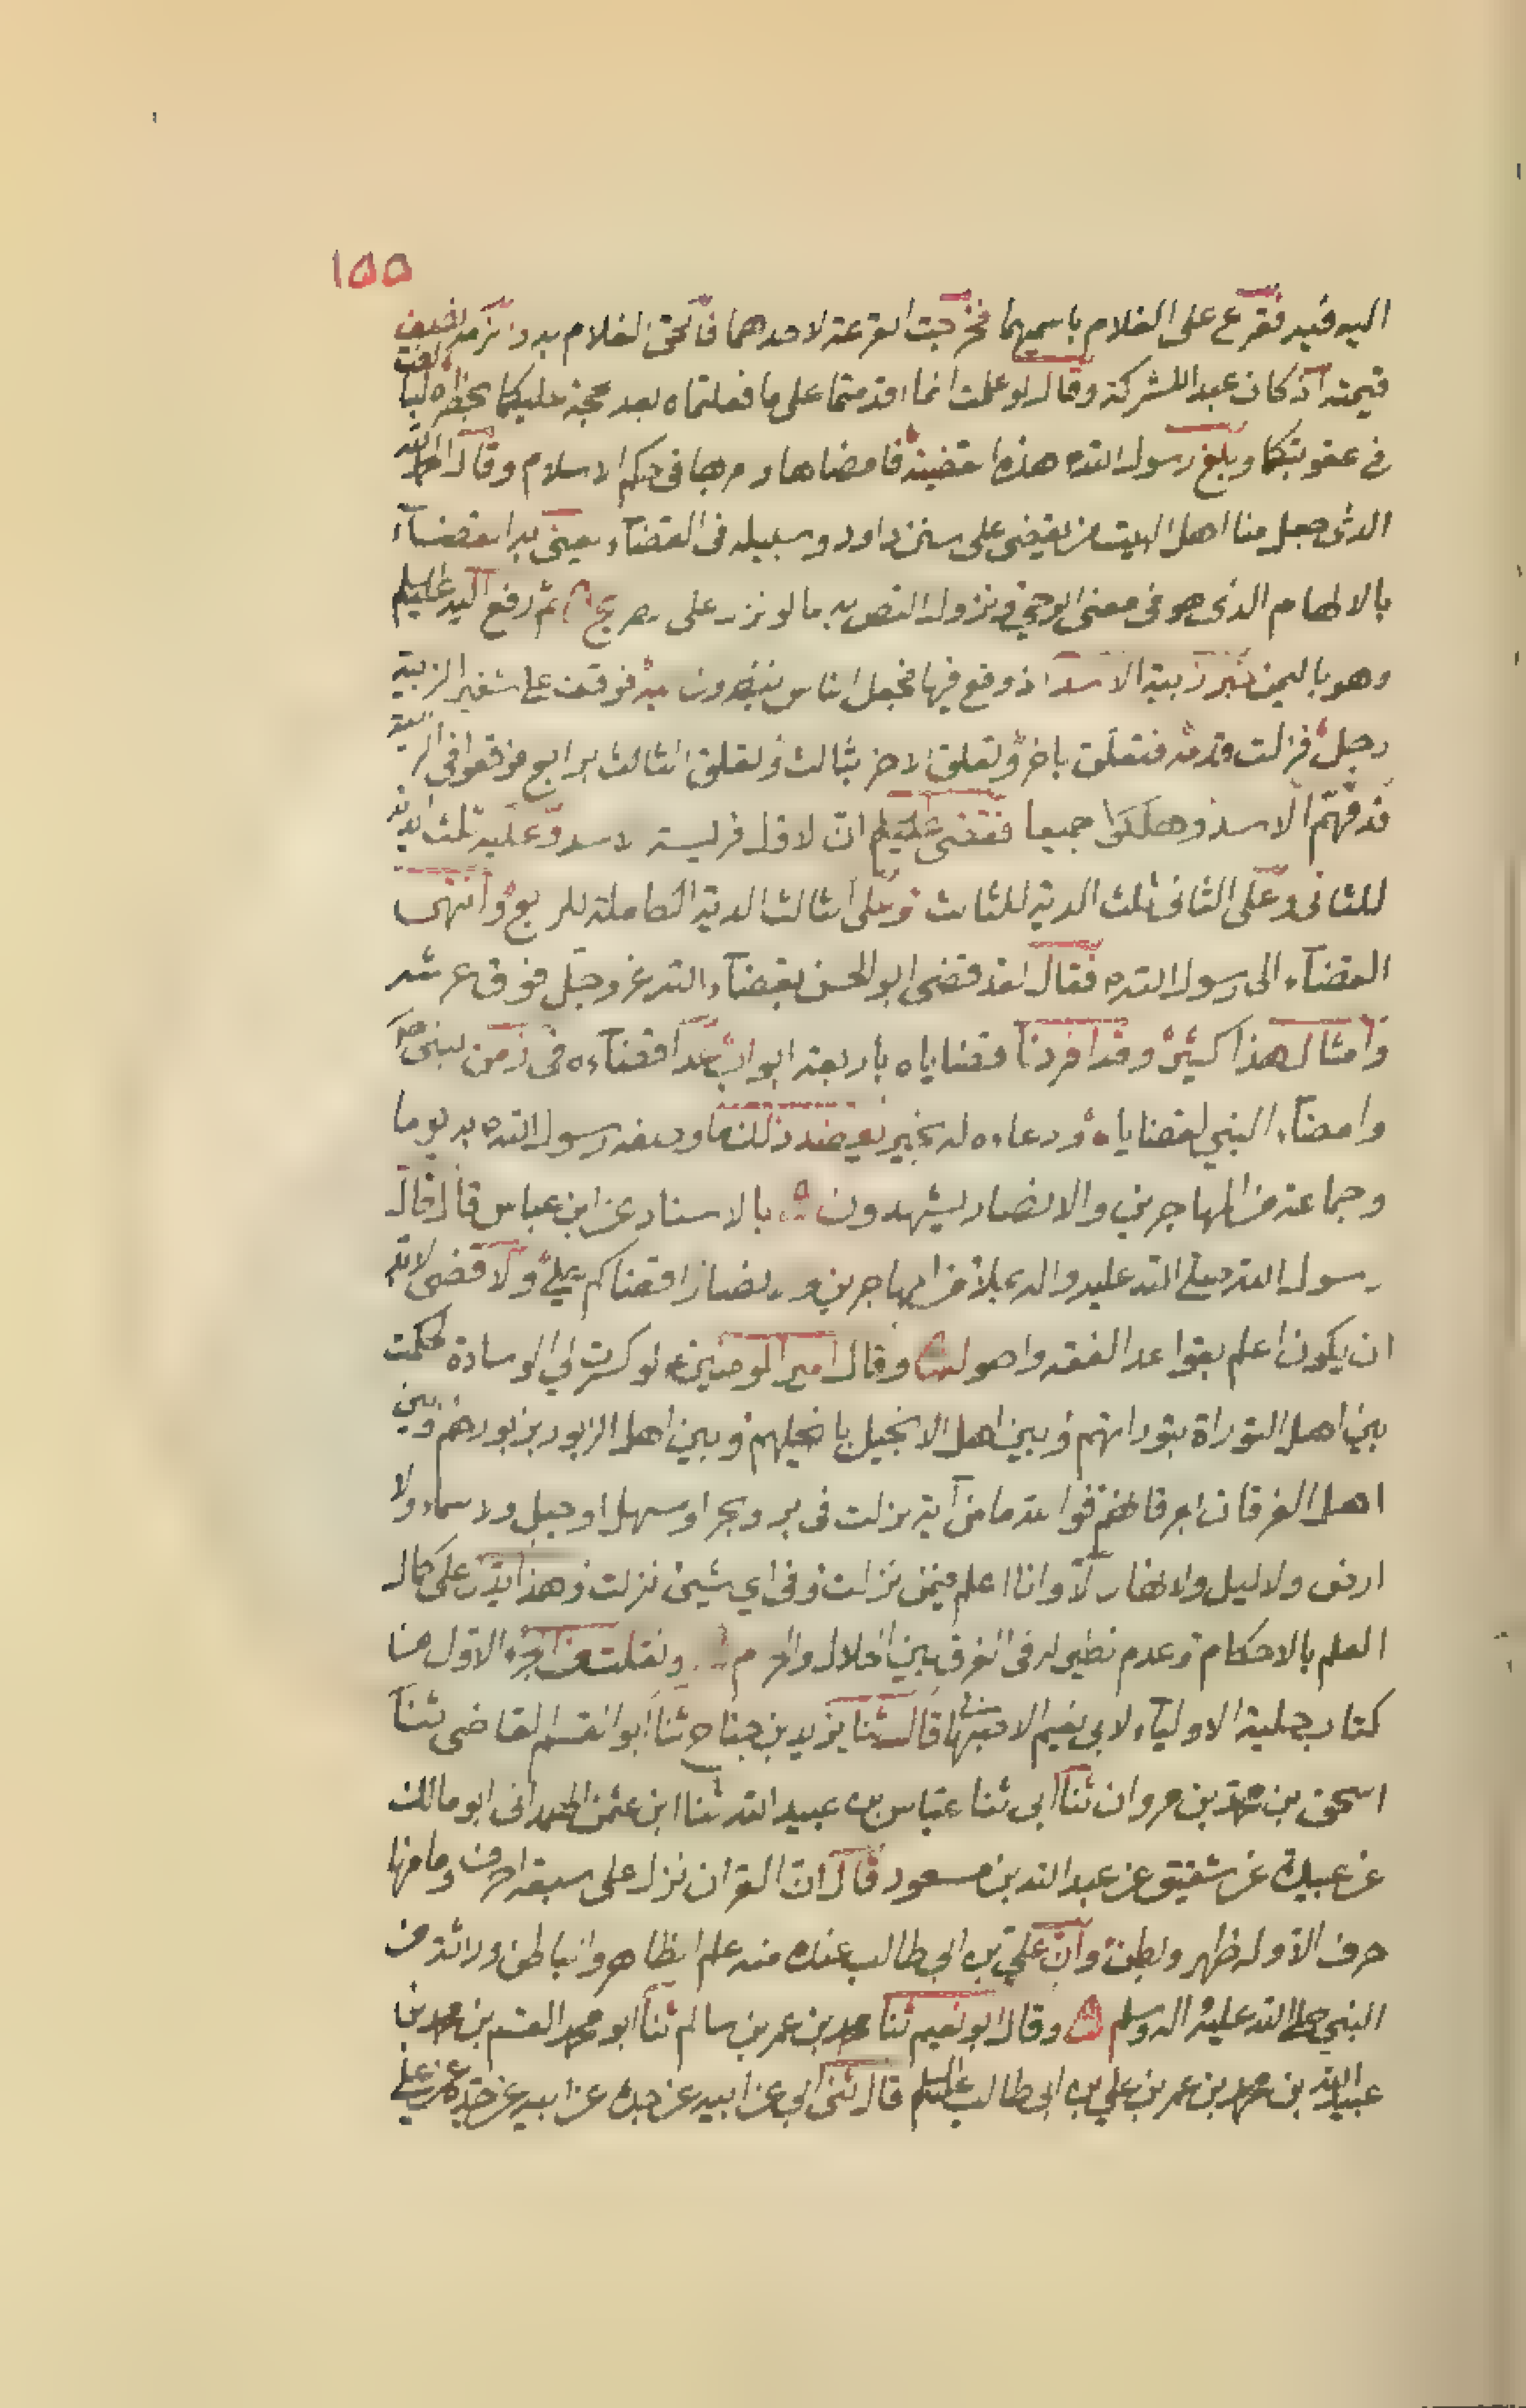 ١٥٥
اليه فيه فقرع على الغلام باسميهما فخرجت القرعة لاحدهما فألحق الغلام به والزمه نصف
قيمته اذ كان عبدا للشركة وقال لو علمت انما اقدمتما على ما فعلتماه بعد حجة عليكما بحظره لبالغت
في عقوبتكما وبلغ رسول الله هذه القضية فامضاها وحكم بها في حكم الاسلام وقال الحمد لله
الذى جعل منا اهل البيت من يقضى على سنن داود وسبيله فى القضآء يعنى به القضآء
بالالهام الذى هو فى معنى الوحى ونزول النص به ما لو نزل على صريح ثم رفع اليه عليه السلم
وهو باليمن خبر زبية الاسد اذ وقع فيها فجعل الناس ينظرون اليه فوقف على شفير الزبية
رجل فزلت قدمه فتعلق باخر وتعلق الاخر بثالث وتعلق الثالث برابع فوقعوا فى الزبية
فدقهم الاسد وهلكوا جميعا فقضى عليه السلم ان الاول فريسة الاسد وعليه ثلث الدية
للثانى وعلى الثانى ثلث الدية للثالث وعلى الثالث الدية الكاملة للرابع وانتهى
القضآء الى رسول الله فقال لقد قضى ابو الحسن بقضآء الله عز وجل فوق عرشه
وامثال هذا كثير وقد افردنا قضاياه بأربعة ابواب قضآءه فى زمن النبى
وامضآء النبي لقضاياه ودعاءه له بخير يعضد ذلك ما وصفه رسول الله به يوما
وجماعة من المهاجرين والانصار يشهدون بالاسناد عن ابن عباس قال قال
رسول الله صلى الله عليه واله بملأ من المهاجرين والانصار اقضاكم علي ولا اقضى لابد
ان يكون اعلم بقواعد الفقه واصوله وقال امير المومنين لو كسرت لي الوسادة لحكمت
بين اهل التوراة بتوراتهم وبين اهل الانجيل بانجيلهم وبين اهل الزبور بزبورهم وبين
اهل الفرقان بفرقانهم فوالله ما من آية نزلت فى بر وبحر او سهل او جبل ولا سماء ولا
ارض ولا ليل ولا نهار الا وانا اعلم فيمن نزلت وفى اي شيئ نزلت وهذا يدل على كمال
العلم بالاحكام وعدم نظير له فى الفرق بين الحلال والحرام ونقلت من الجزء الاول من
كتاب حلية الاوليآء لابي نعيم الاصبهانى قال ثنا يزيد بن جناح ثنا ابو القسم القاضى ثنا
اسحق بن محمد بن مروان ثنا ابى ثنا عباس بن عبيد الله ثنا ابن عثمن الهمدانى ابو مالك
عن عبيدة عن شقيق عن عبد الله بن مسعود قال ان القران نزل على سبعة احرف وما منها
حرف الا وله ظهر وبطن وان علي بن ابي طالب عنده منه علم الظاهر والباطن وراثة من
النبي صلى الله عليه واله وسلم وقال ابو نعيم ثنا محمد بن عمر بن سالم ثنا ابو محمد القسم بن محمد بن
عبيد الله بن محمد بن عمر بن علي بن ابى طالب عليه السلم قال ثنى ابي عن ابيه عن جده عن ابيه عن جده عن علي